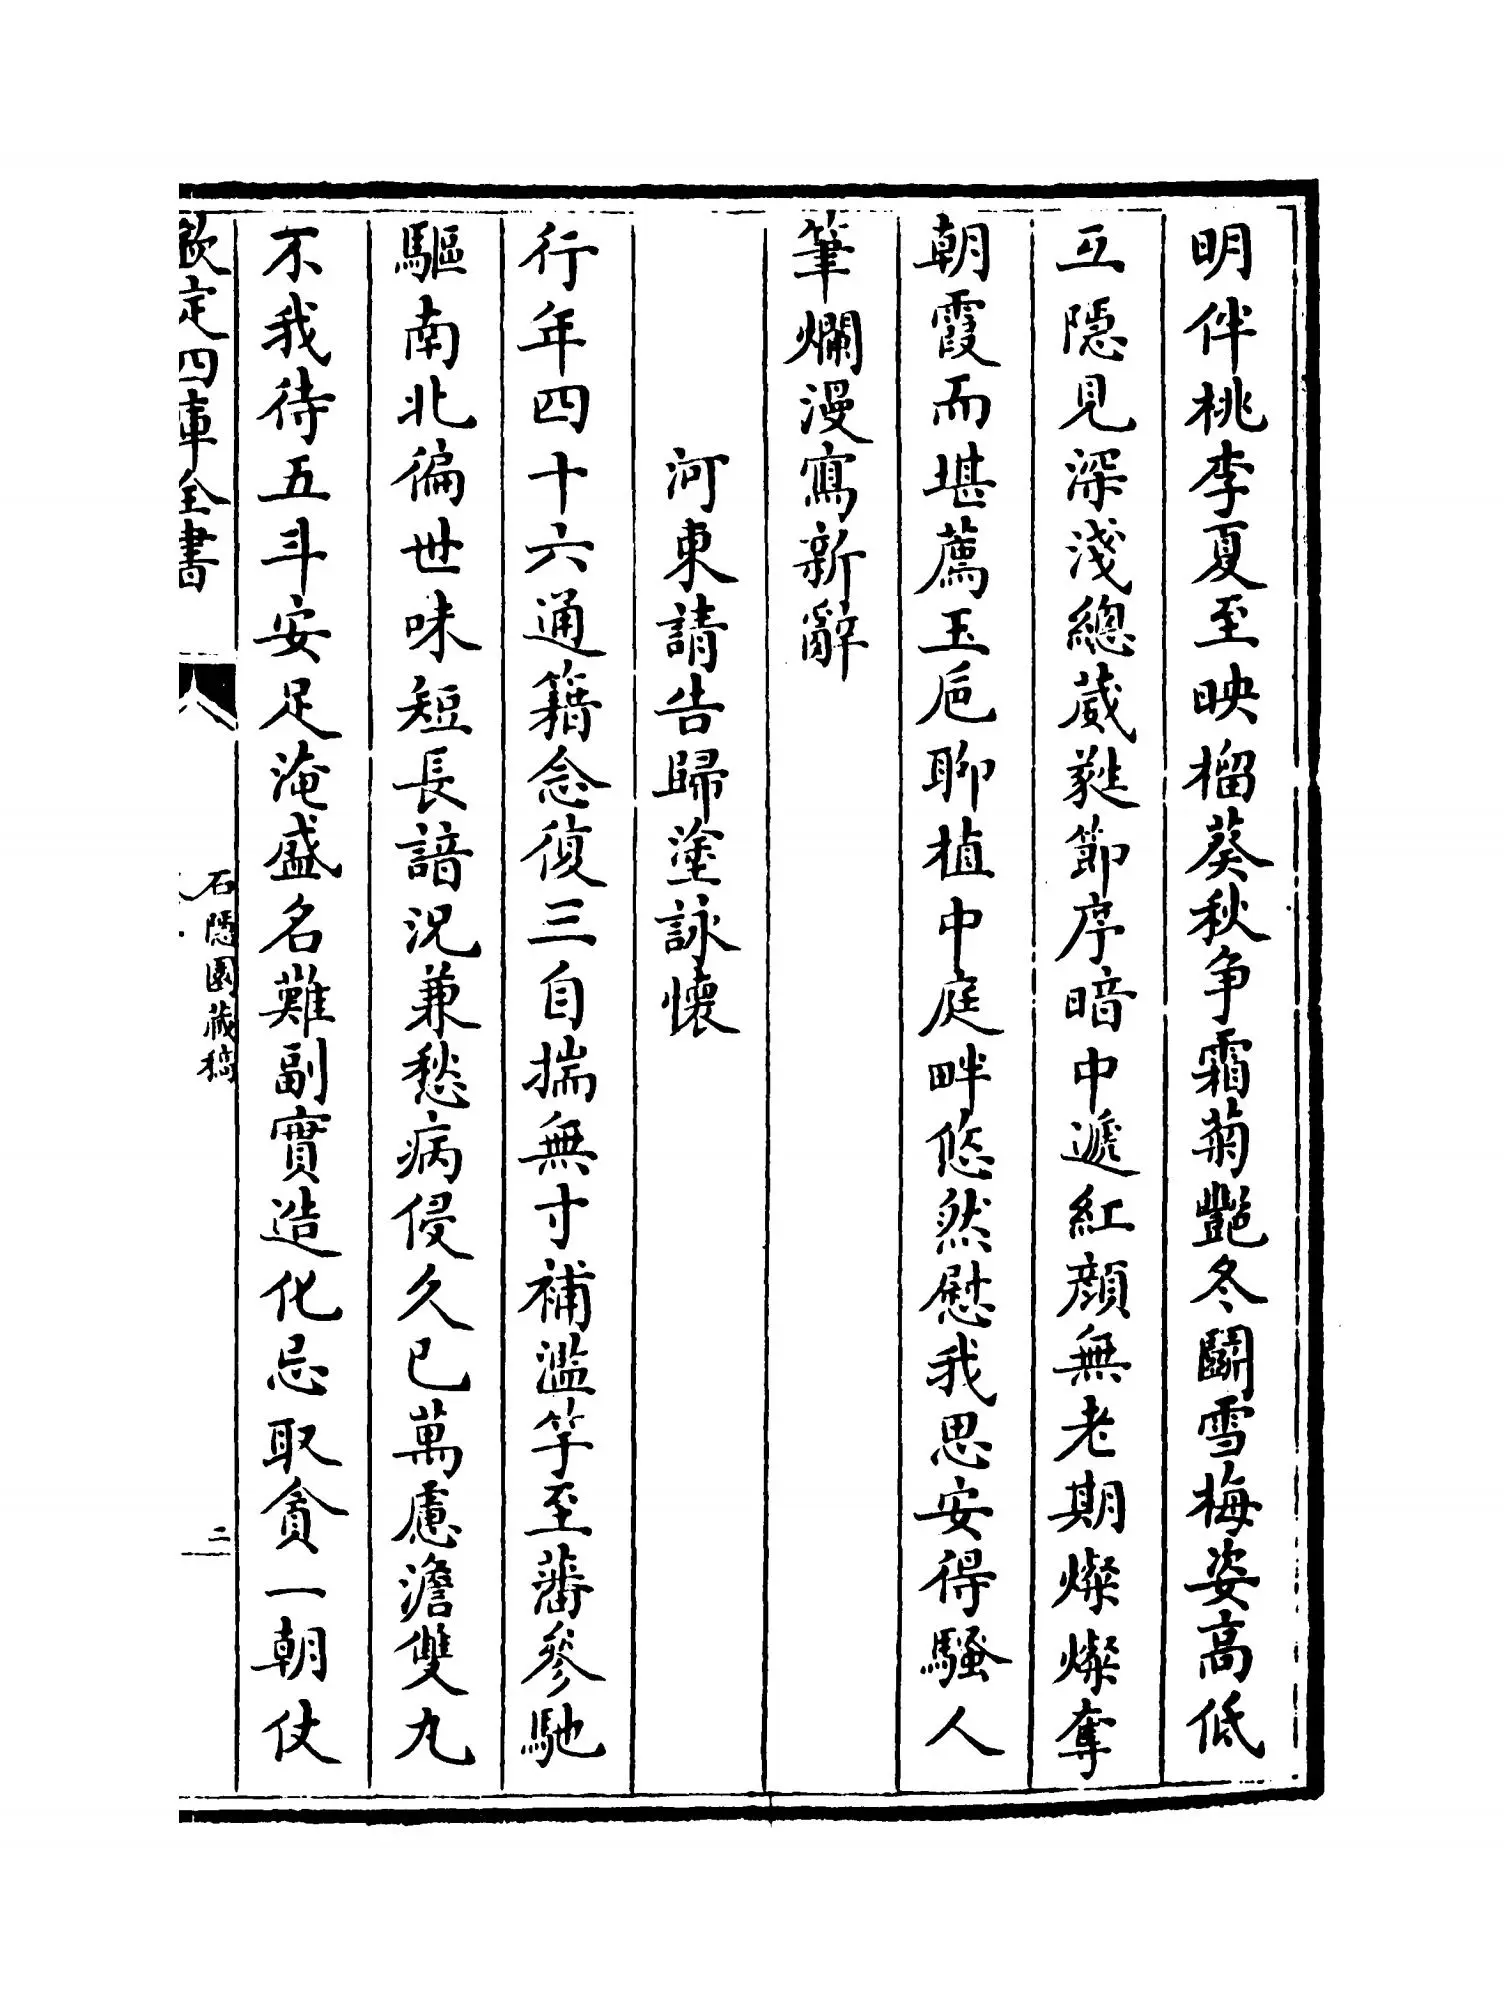 明伴桃李夏至映榴葵秋争霜菊艷冬鬭雪梅姿高低
互隱見深淺總葳蕤節序暗中遞紅顔無老期燦燦奪
朝霞而堪薦玉巵聊植中庭畔悠然慰我思安得騷人
筆爛漫寫新辭
河東請告歸塗詠懷
行年四十六通籍念復三自揣無寸補濫竽至藩參馳
驅南北徧世味短長諳况兼愁病侵久已萬慮澹雙丸
不我待五斗安足淹盛名難副實造化忌取貪一朝仗
欽定四庫全書
石隱園藏稿
二